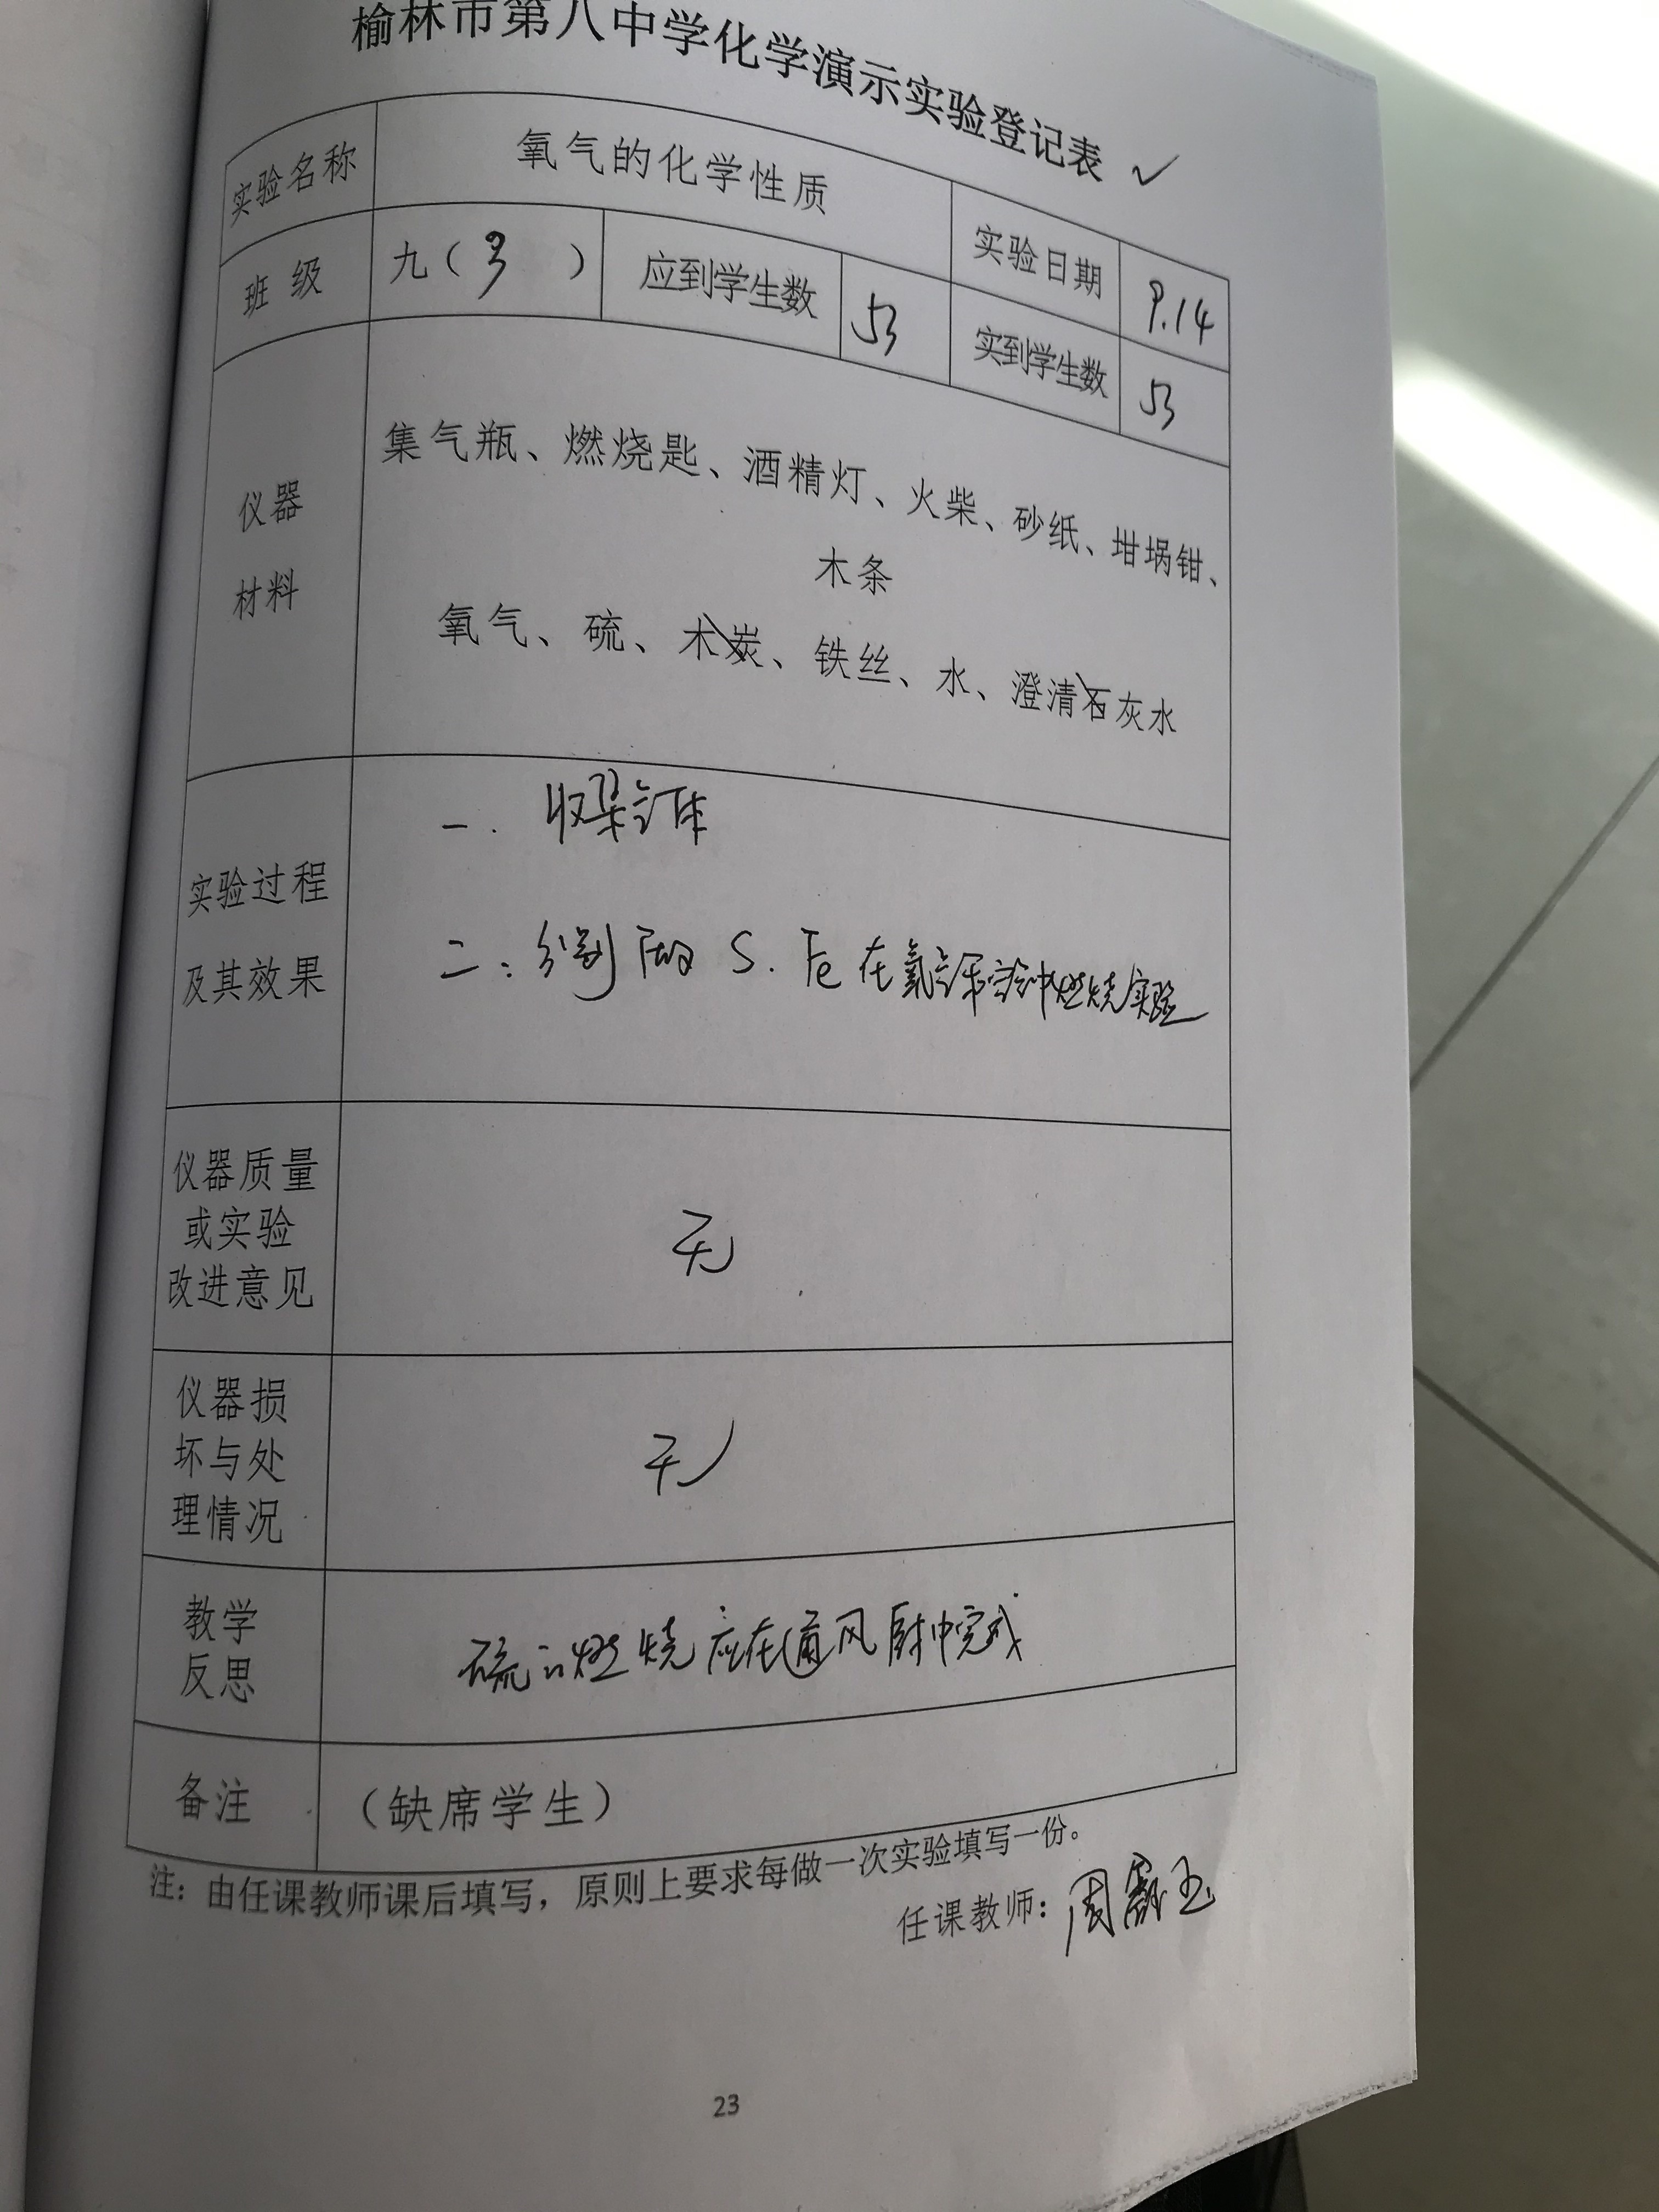 榆林市第八中学化学演示实验登记表 ✓
实验名称 氧气的化学性质 实验日期 9.14
班级 九（3 ） 应到学生数 53 实到学生数 53
仪器
材料
集气瓶、燃烧匙、酒精灯、火柴、砂纸、坩埚钳、
木条
氧气、硫、木炭、铁丝、水、澄清石灰水
实验过程
及其效果
一. 收集气体
二: 分别做 S. Fe 在氧气中燃烧实验
仪器质量
或实验
改进意见
无
仪器损
坏与处
理情况
无
教学
反思
硫的燃烧应在通风厨中完成
备注 （缺席学生）
注：由任课教师课后填写，原则上要求每做一次实验填写一份。
任课教师：周
23